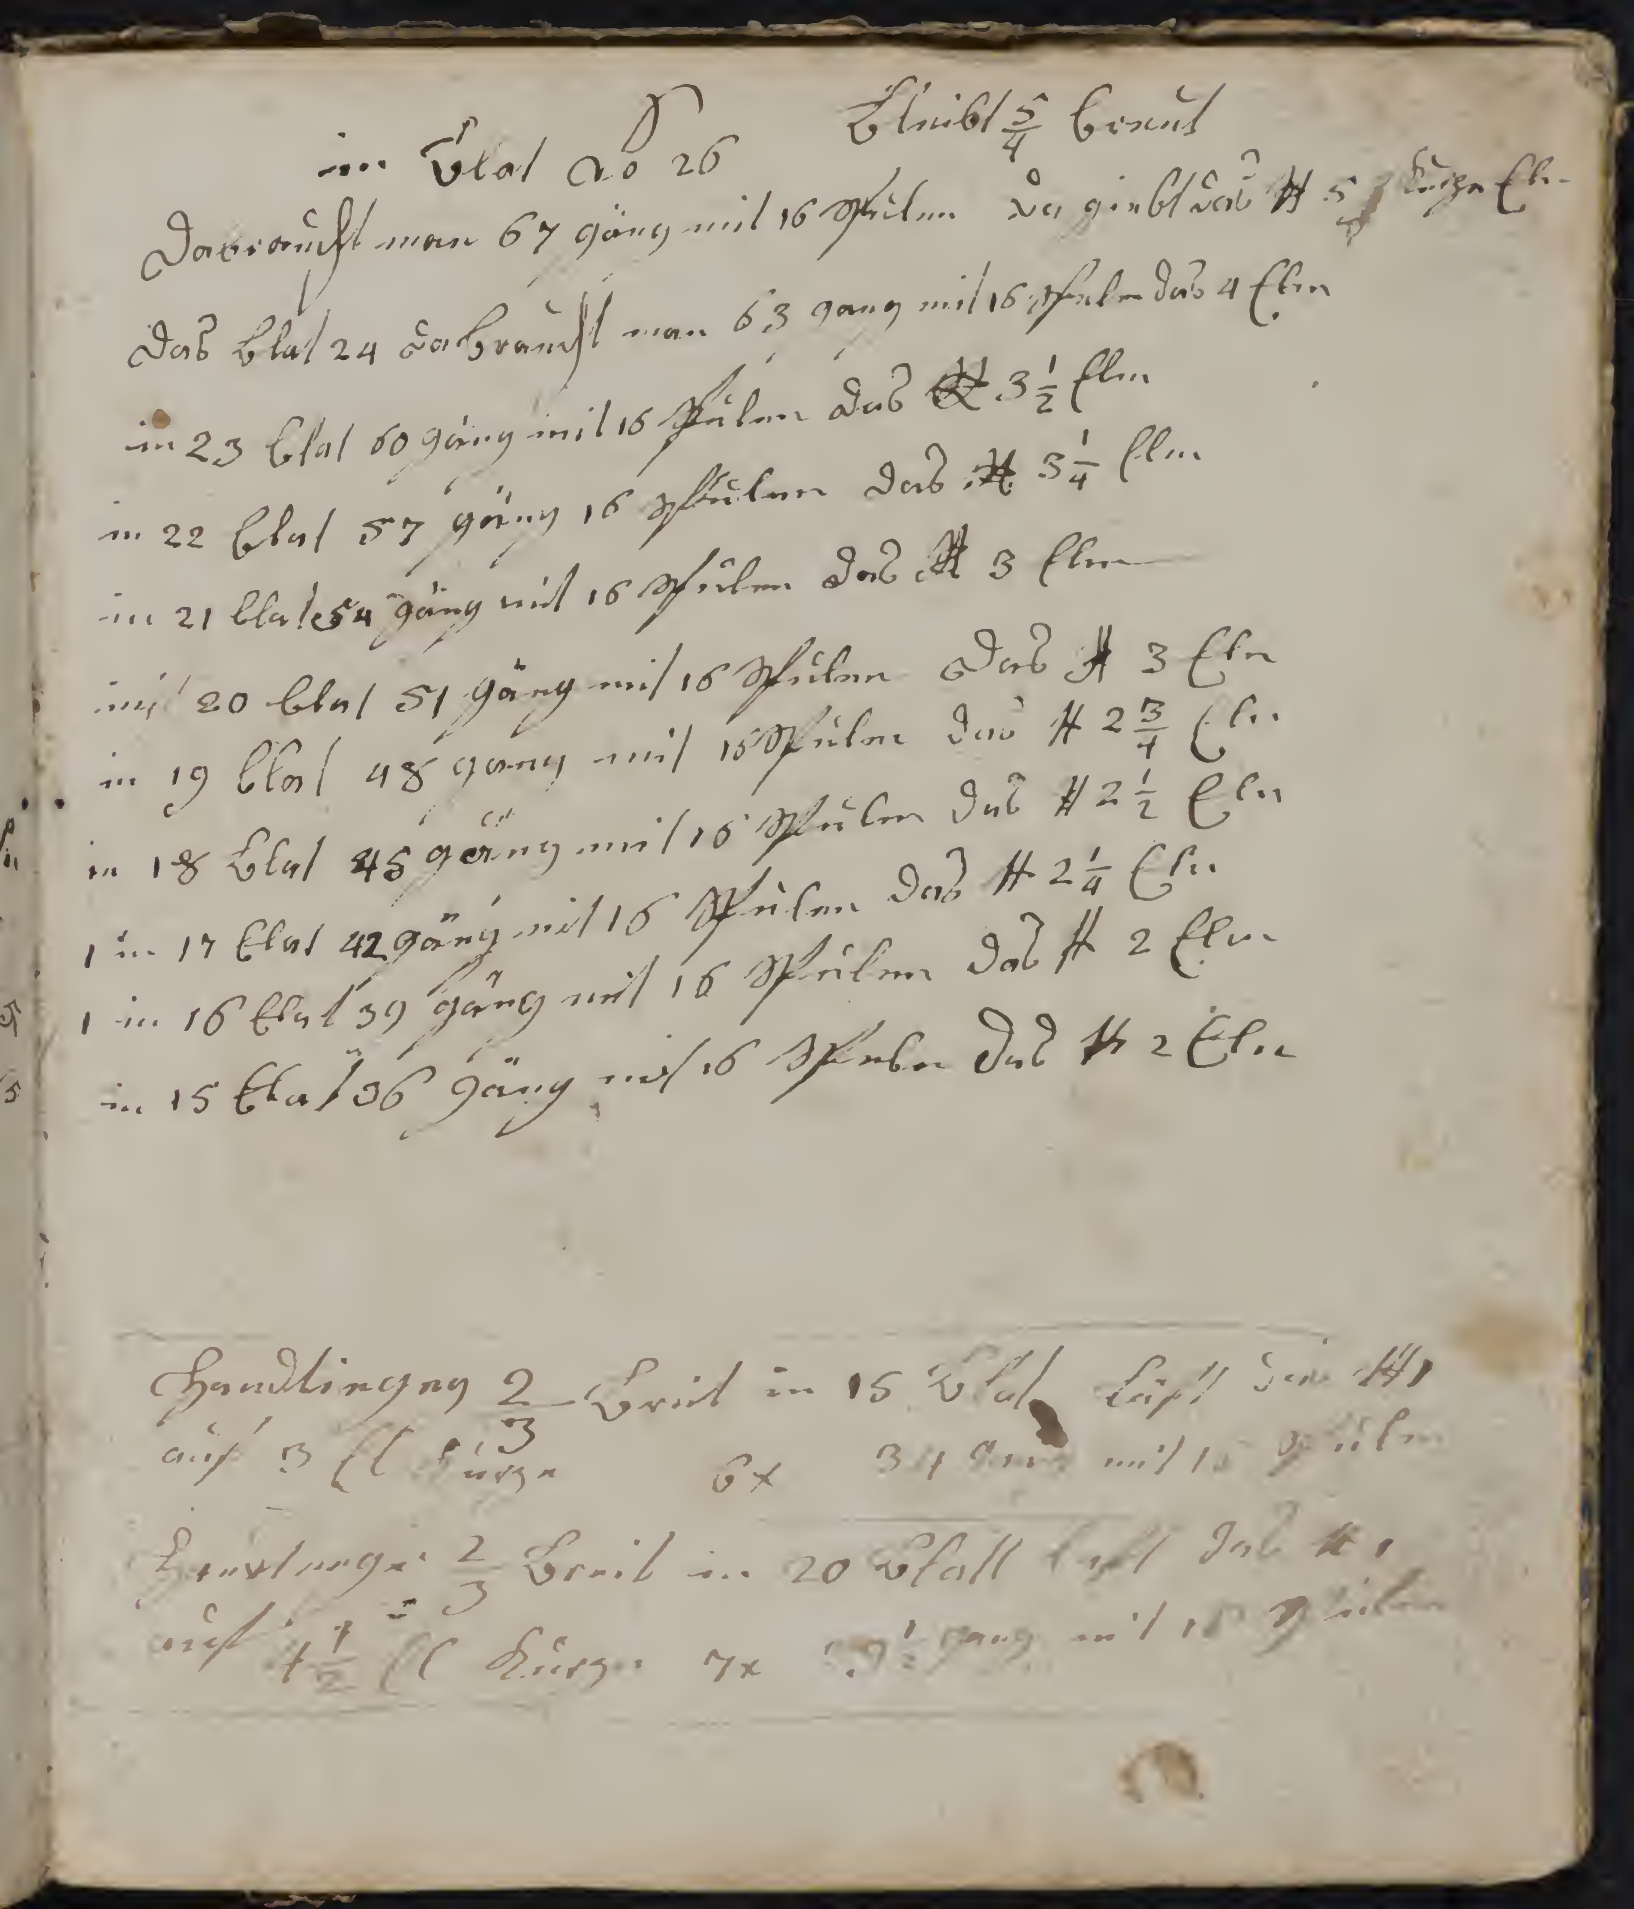 im Blat No 26 Bleibt 5/4 breut
Dabraucht man 67 gäng mit 16 Spulen da giebt das ℔ 5 kurze Eln
das blat 24 dabraucht man 63 gang mit 16 Spulen das 4 Elen
in 23 blat 60 gäng mit 16 Spulen das ℔ 3 1/2 Elen
in 22 blat 57 gäng 16 Spulen das ℔ 3 1/4 Elen
in 21 blat 54 gäng mit 16 Spulen das ℔ 3 Elen
20 blat 51 gäng mit 16 Spulen das ℔ 3 Eln
in 19 blat 48 gang mit 16 Spulen das ℔ 2 3/4 Eln
in 18 blat 45 gäng mit 16 Spulen das ℔ 2 1/2 Eln
1 in 17 blat 42 gäng mit 16 Spulen das ℔ 2 1/4 Eln
1 in 16 blat 39 gäng mit 16 Spulen das ℔ 2 Elen
in 15 blat 36 gäng mit 16 Spulen das ℔ 2 Eln
2/3 Breit in 15 Blat die ℔ 1
auf 3 El kurze 6x 34 gang mit 16 Spulen
2/3 Breit in 20 Blatt das ℔ 1
auf 4 1/2 El kurze 7x 1/2 gang mit 16 Spulen